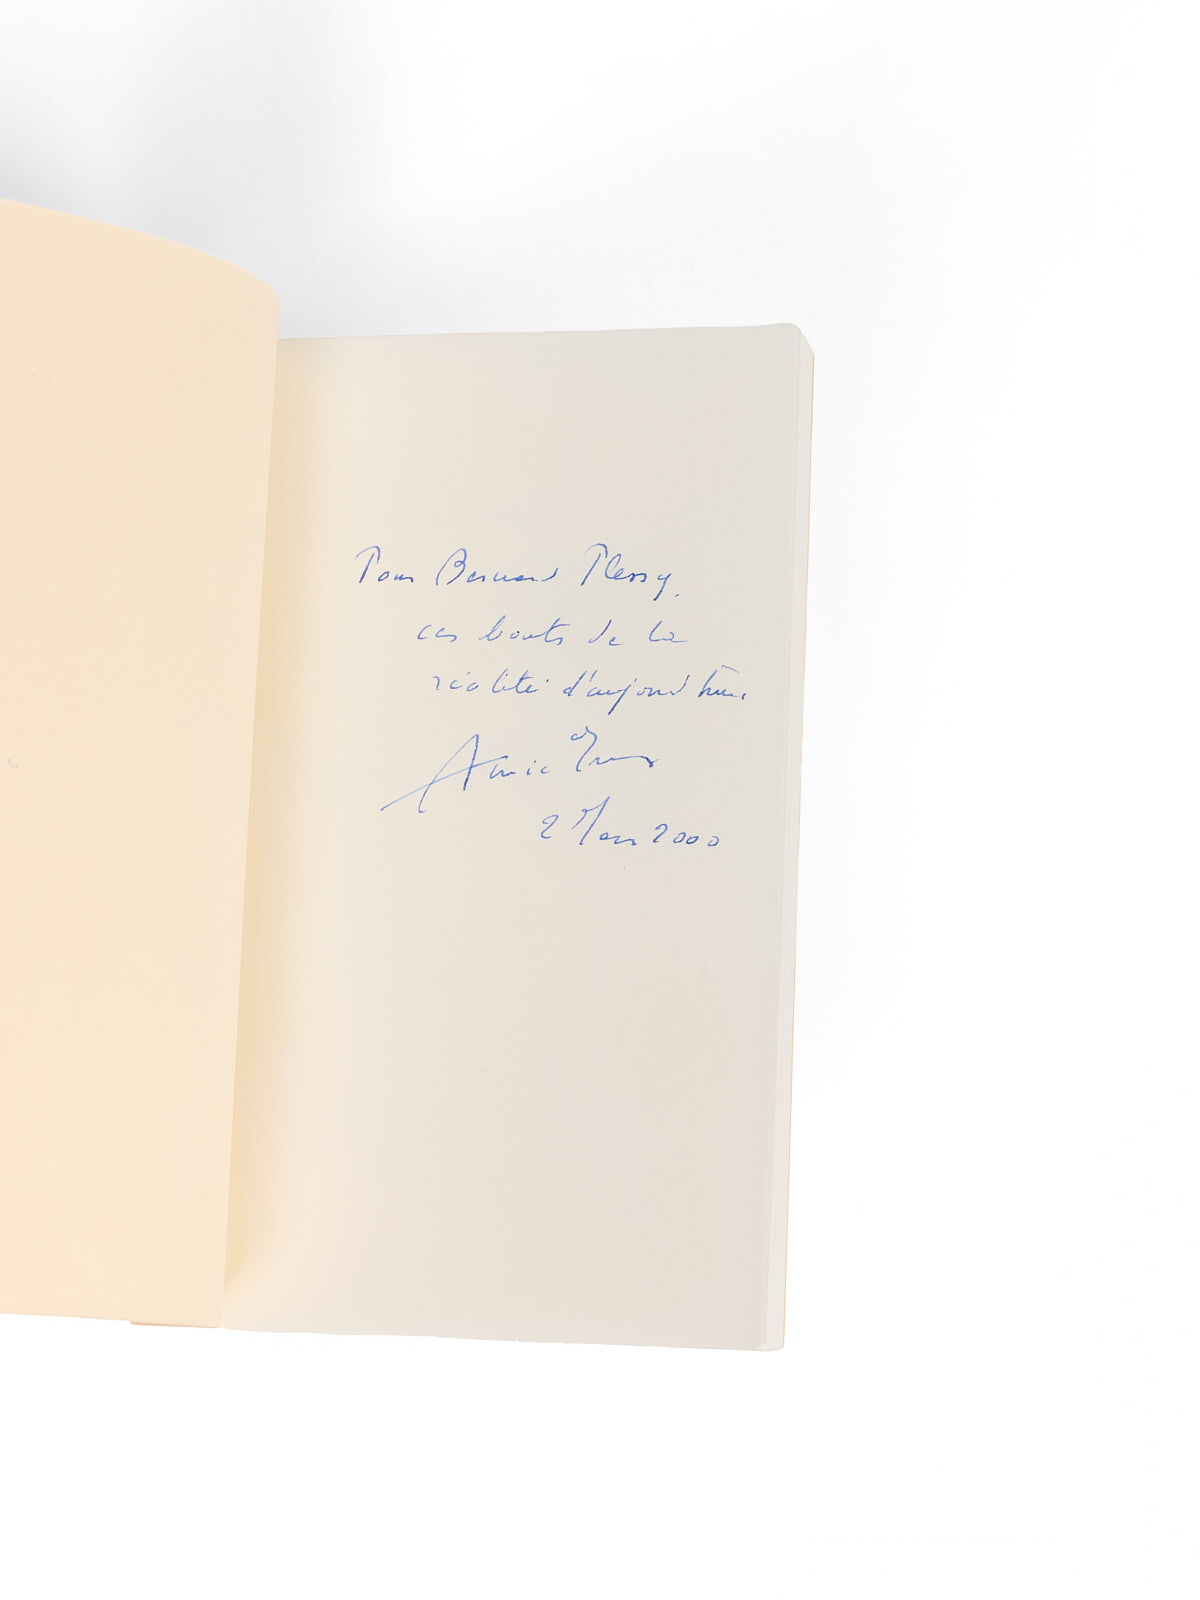 Pour Bernard Plessy,
ces bouts de la
réalité d'aujourd'hui.
Annie Ernaux
2 Mars 2000